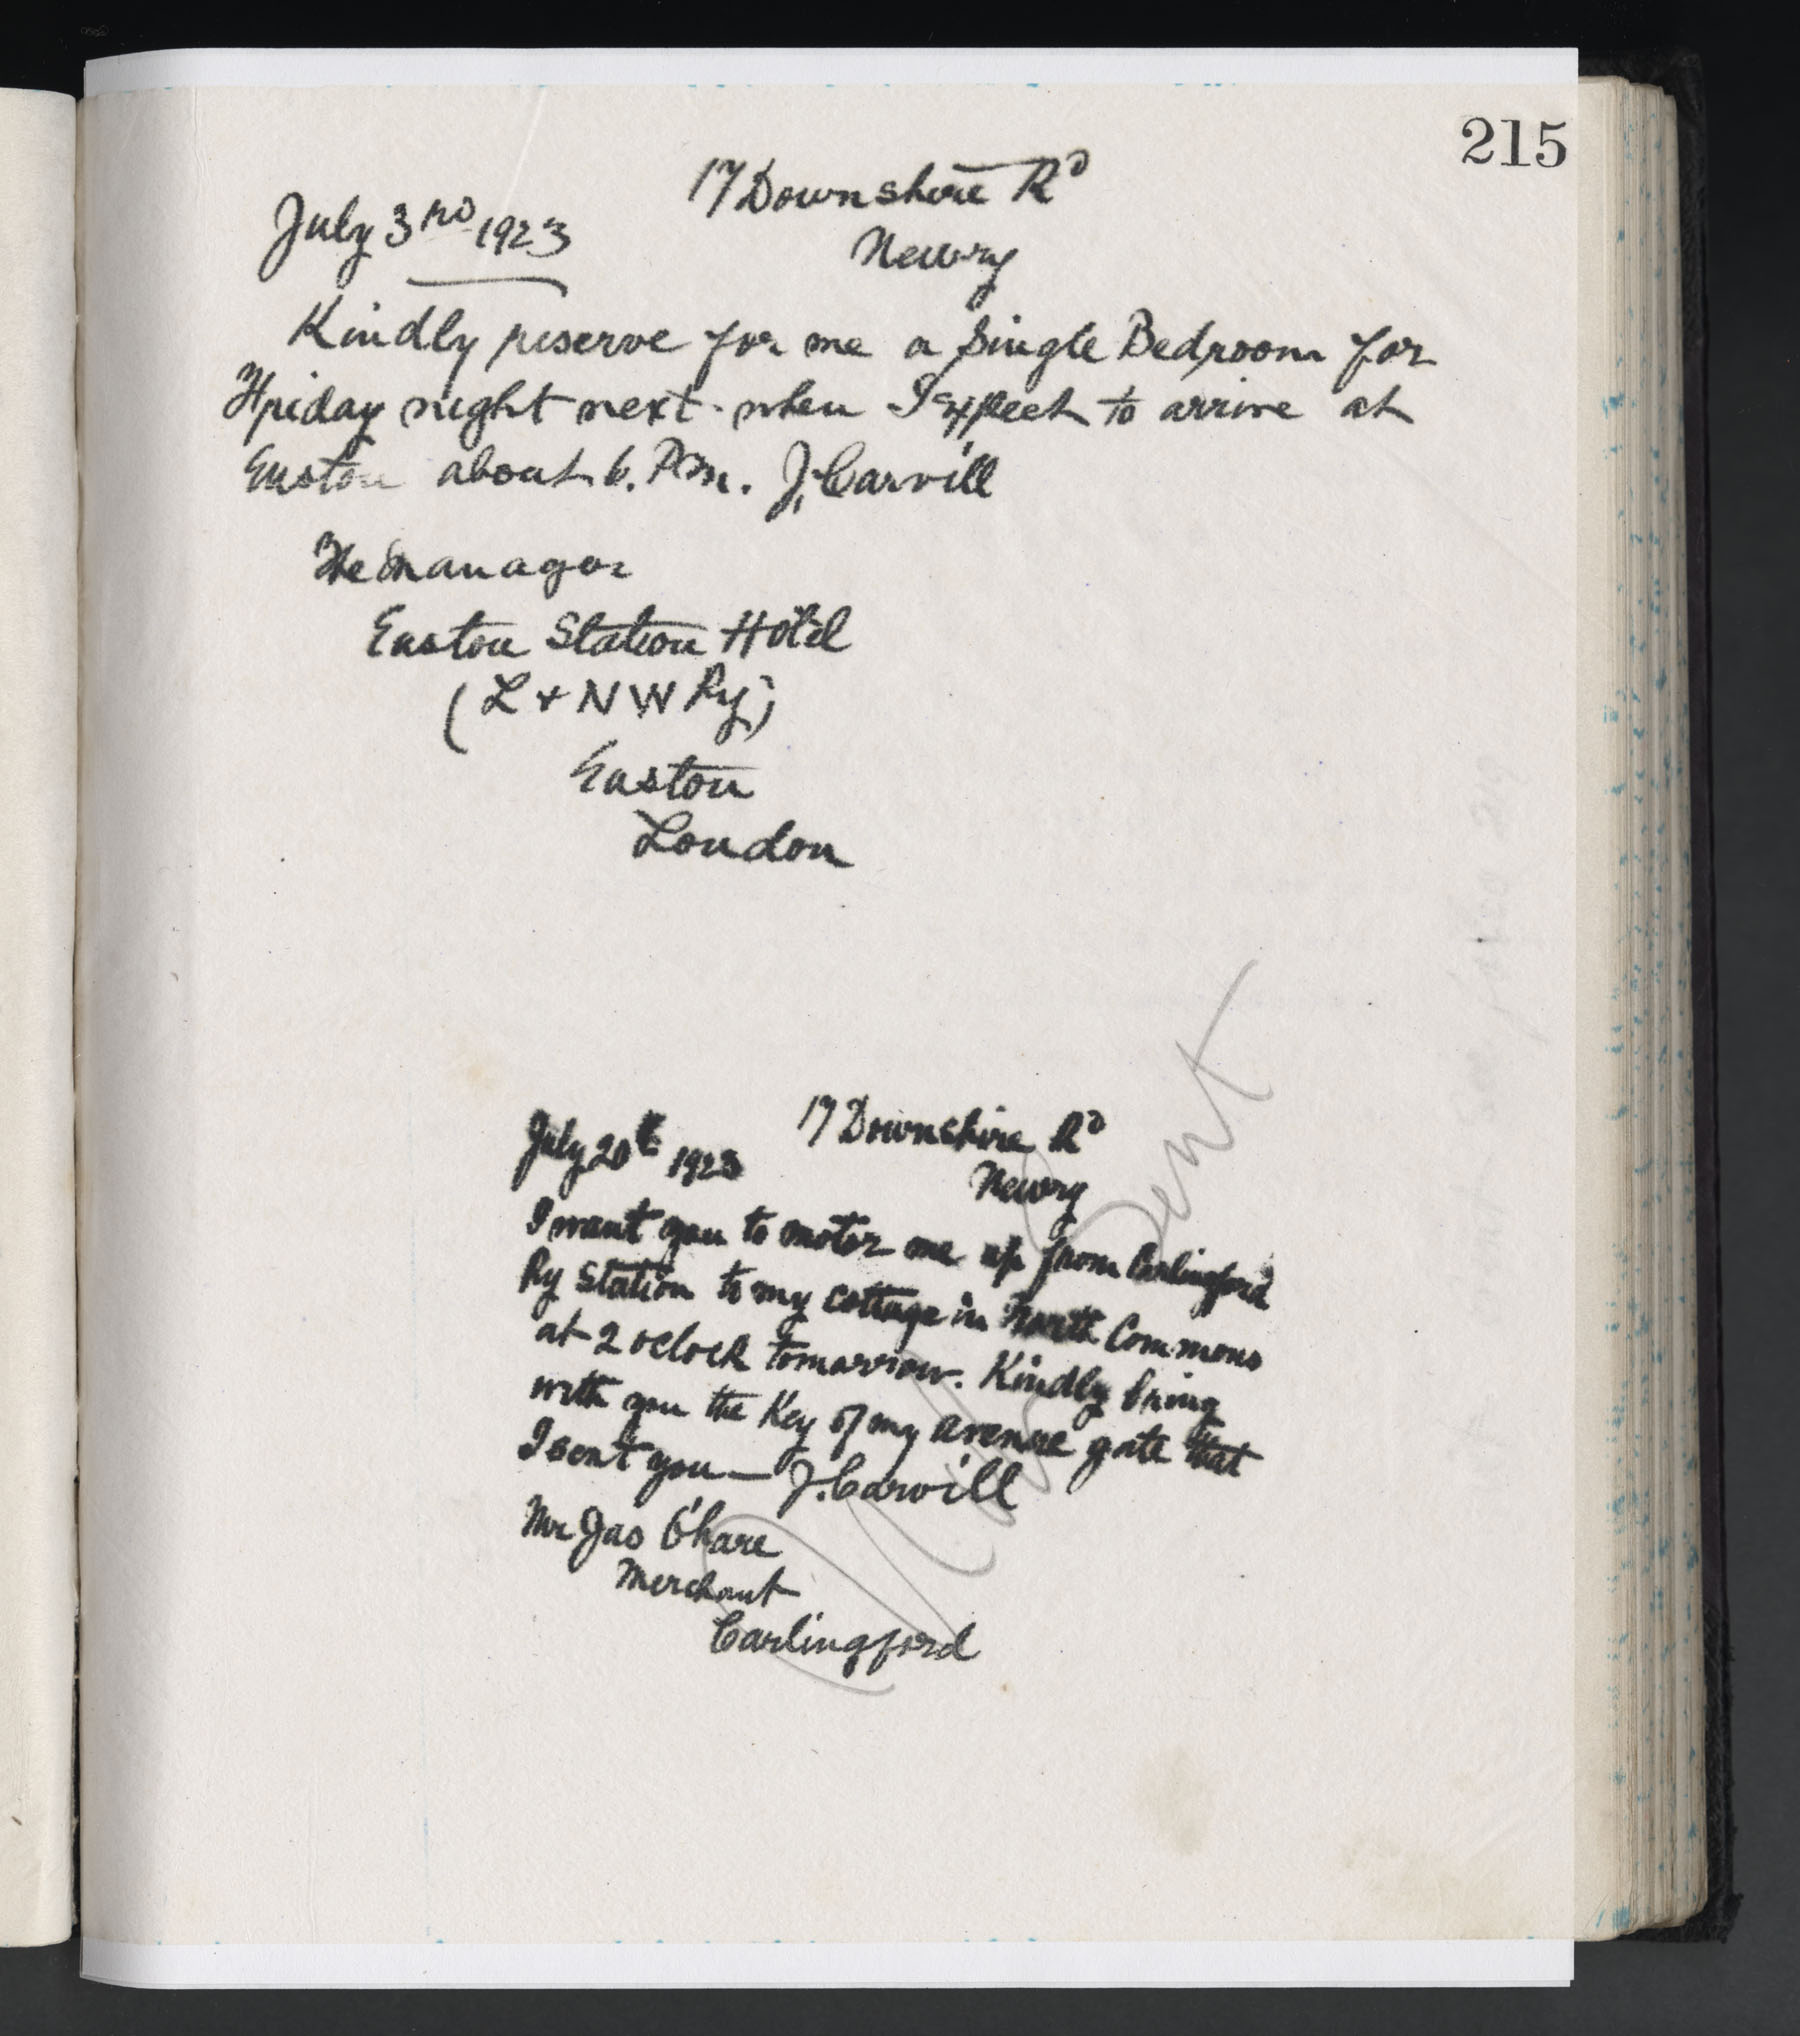 215
17 Downshire Rd
Newry
July 3rd 1923
Kindly reserve for me a single Bedroom for
Friday night next when I expect to arrive at
Euston about 6. P.m. J. Carvill
The Manager
Euston Station Hotel
(L + N W Ry)
Euston
London
17 Downshire Rd
Newry
July 20th 1923
I want you to motor me up from Carlingford
Ry Station to my cottage in North Commons
at 2 oclock tomorrow. Kindly bring
with you the Key of my avenue gate that
I sent you — J. Carvill
Mr Jas O'hare
Merchant
Carlingford
Not Sent